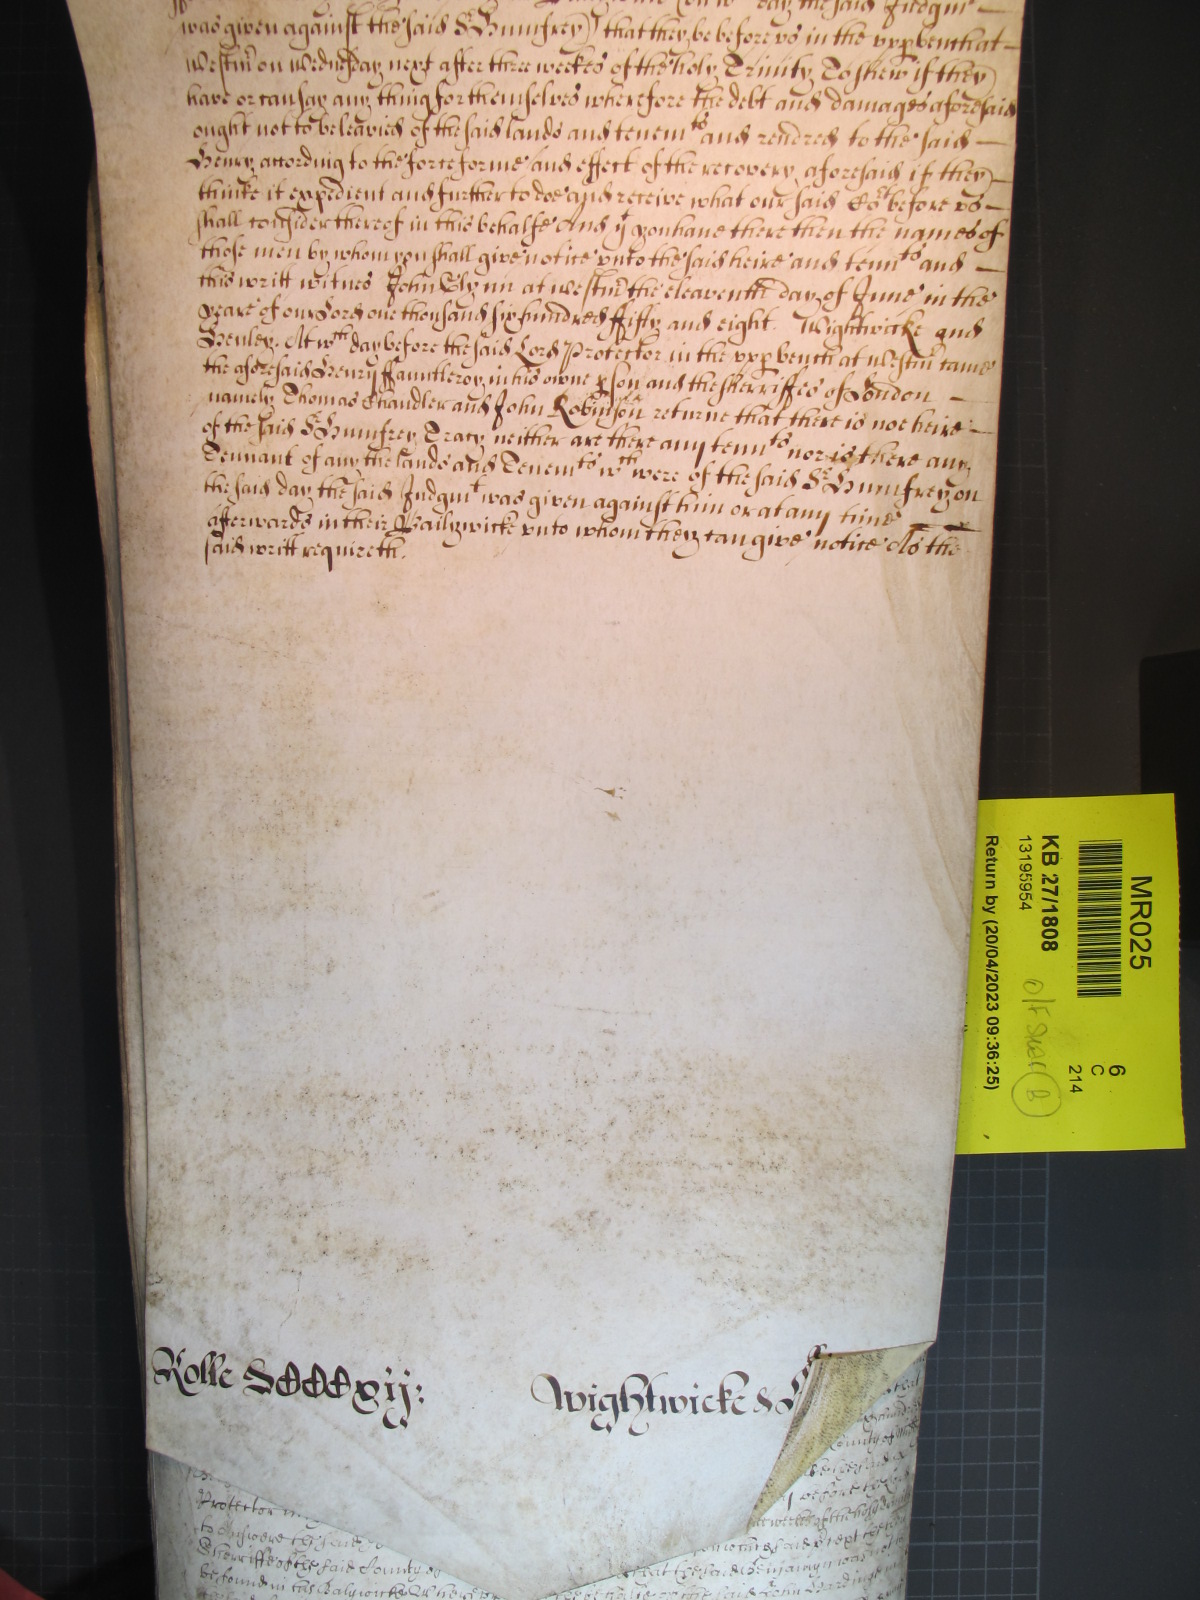 day the said Judgmt
was given against the said Sr Humfrey) that they be before us in the upp bench at
Westmr on Wednesday next after three weekes of the holy Trinity To shew if they
have or can say any thing for themselves wherefore the debt and damages aforesaid
ought not to be leavied of the said lands and tenemts and rendred to the said
Henry according to the force forme and effect of the recovery aforesaid if they
thinke it expedient and further to doe and receive what our said Cort before us
shall consider thereof in this behalfe And yt you have there then the names of
those men by whom you shall give notice unto the said heire and tennts and
this writt witnes John Glynn at Westmr the eleaventh day of June in the
yeare of our Lord one thousand six hundred fifty and eight. Wightwicke and
Henley. At wch day before the said Lord Protector in the upp bench at Westmr came
the aforesaid Henry ffauntleroy in his owne pson and the sherriffes of London
namely Thomas Chandler and John Robinson returne that there is noe heire
of the said Sr Humfrey Tracy neither are there any tennts nor is there any
Tennant of any the lands and Tenemts wch were of the said Sr Humfrey on
the said day the said Judgmt was given against him or at any time
afterwards in their Bailywicke unto whom they can give notice As the
said writt requireth.
Rolle DCCCxij:
Wightwicke &
Protector
to answere the said
Sherriffe of the said County of
be found in his Balywicke Whereupon
County of
before the
weekes of the holy
next
MR025
KB 27/1808
13195954
Return by (20/04/2023 09:36:25)
6
C
214
B